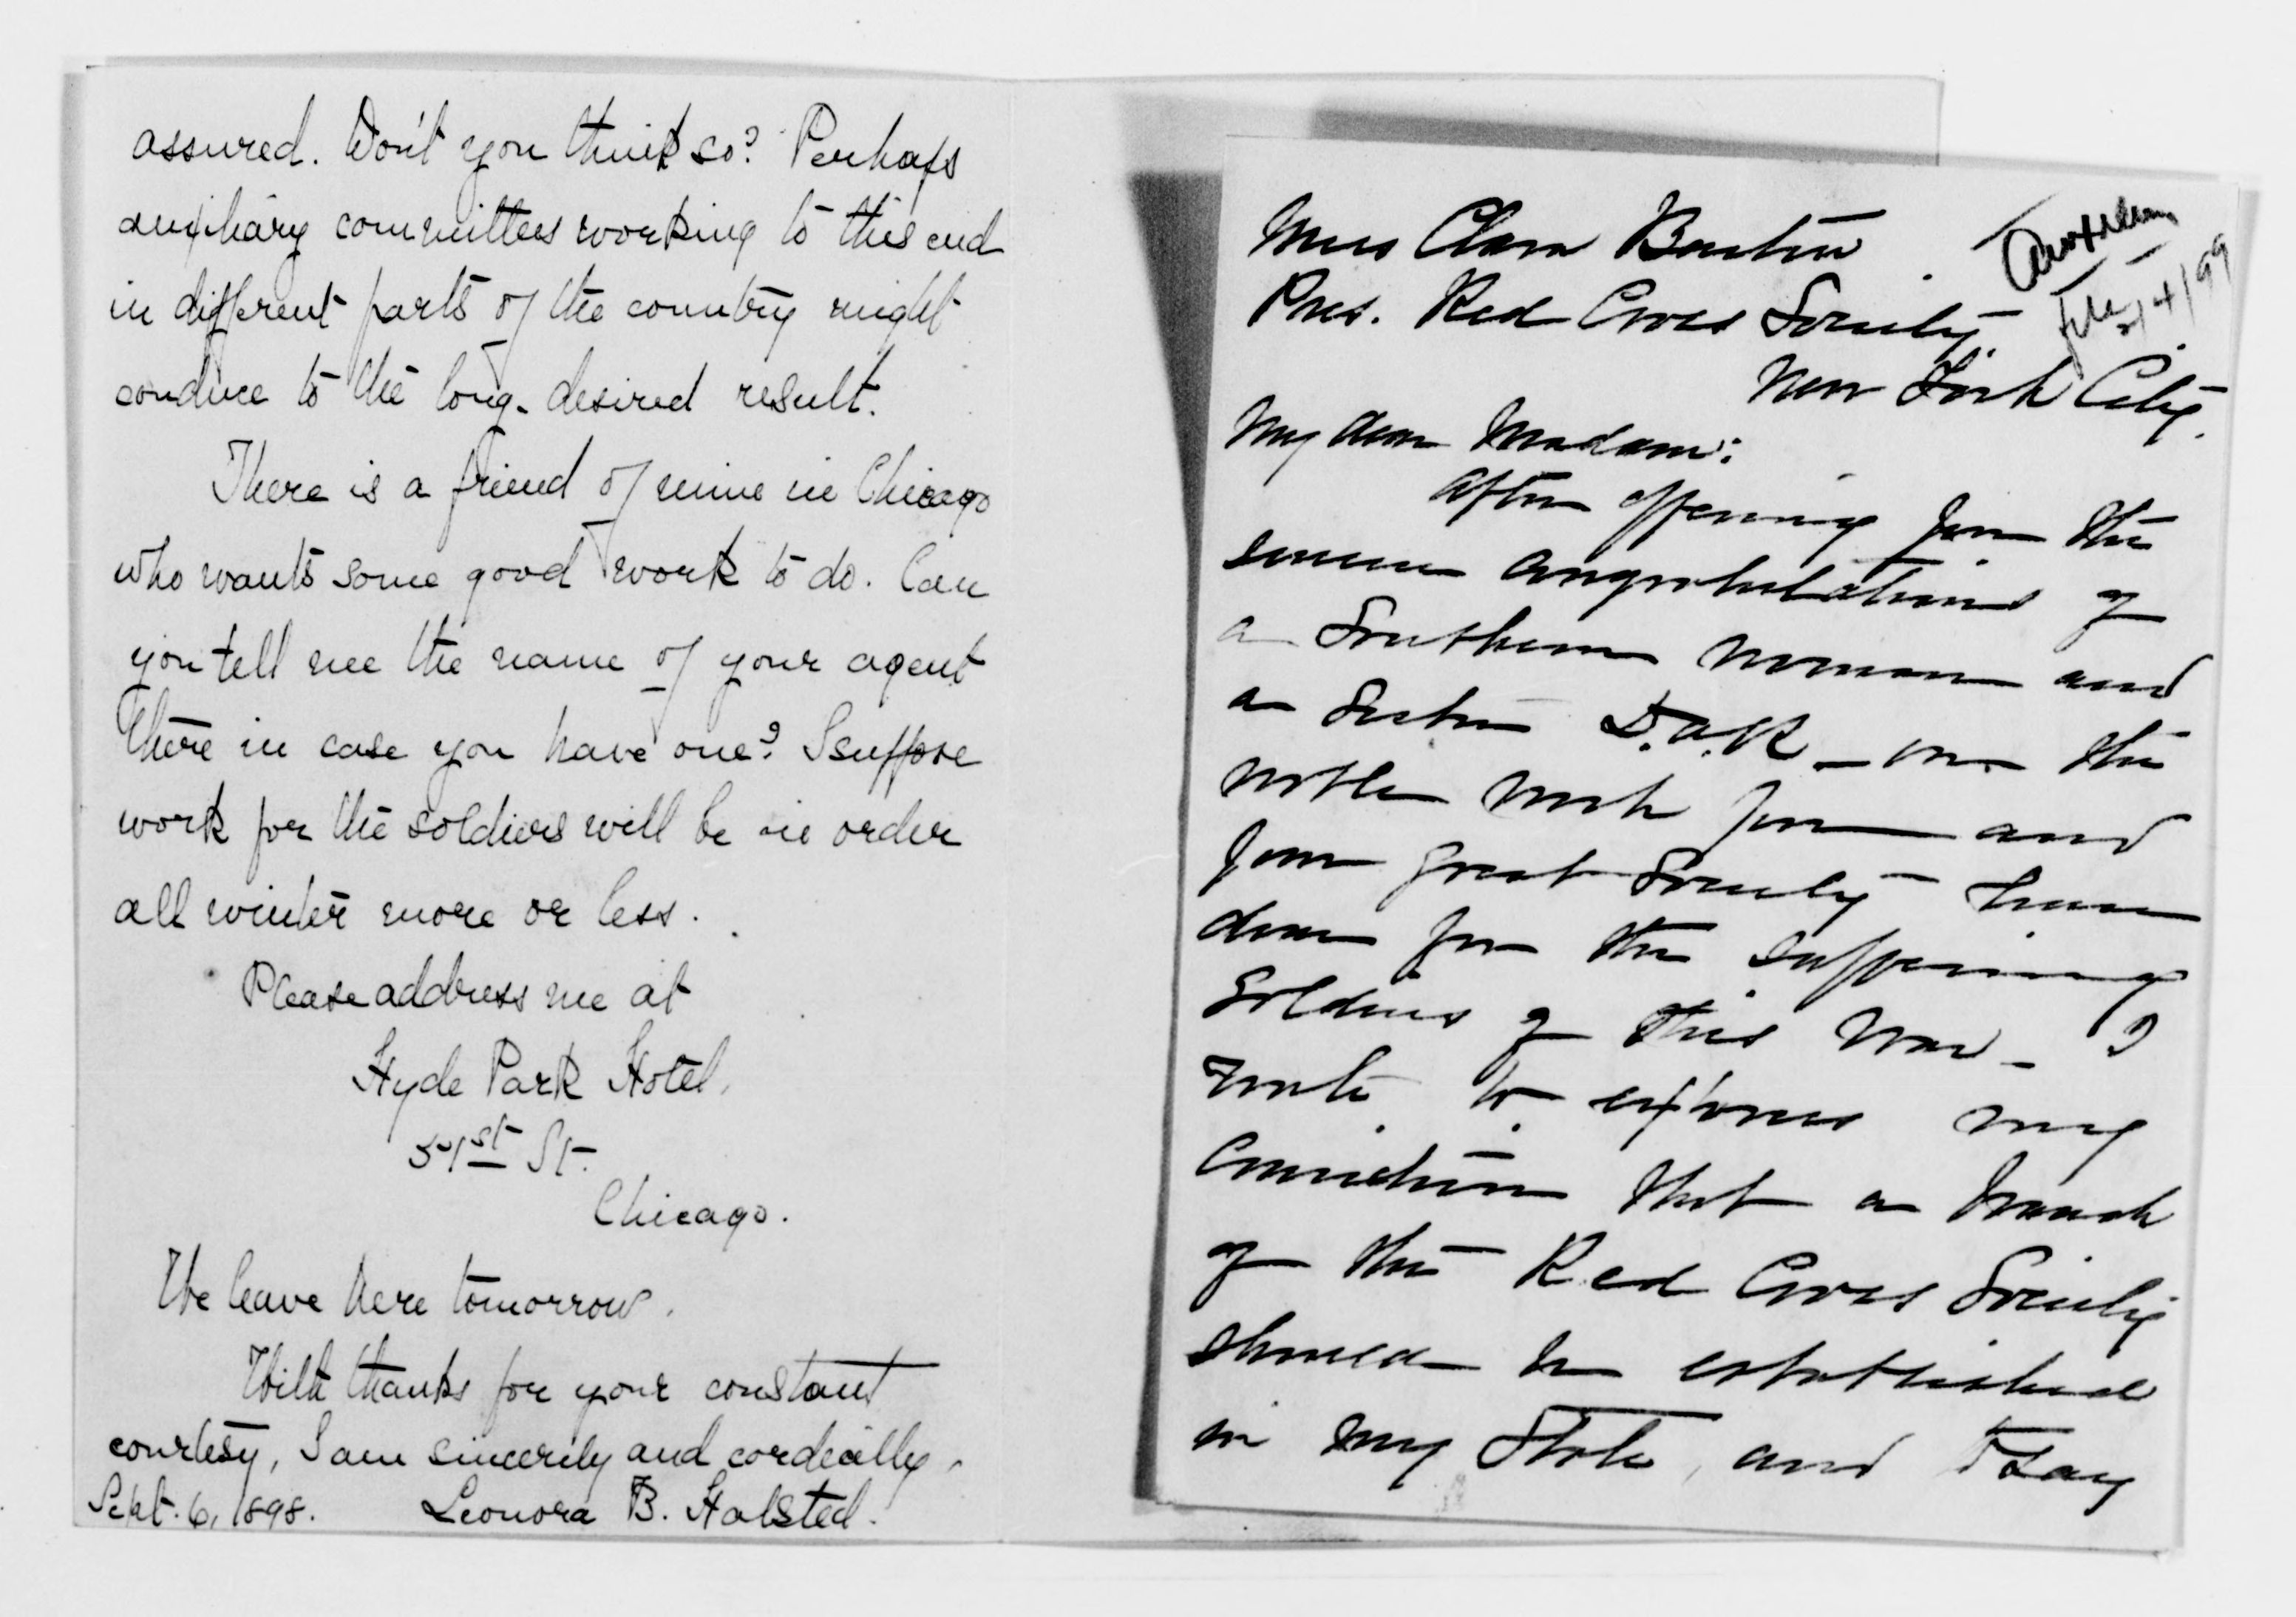 assured. Don't you think so? Perhaps
auxiliary committees working to this end
in different parts of the country might
conduce to the long-desired result.
There is a friend of mine in Chicago
who wants some good work to do. Can
you tell me the name of your agent
there in case you have one? I suppose
work for the soldiers will be in order
all winter more or less.
Please address me at
Hyde Park Hotel,
51st St.
Chicago.
We leave here tomorrow.
With thanks for your constant
courtesy, I am sincerely and cordially,
Sept. 6, 1898. Leonora B. Halsted.
Miss Clara Barton
Pres. Red Cross Society.
New York City.
file 2/4/99
My dear Madam:
After offering you the
sincere congratulations of
a Southern woman and
a Sister D.A.R. — on the
noble work you and
your great Society have
done for the suffering
soldiers of this war — I
write to express my
conviction that a branch
of the Red Cross Society
should be established
in my State, and I say